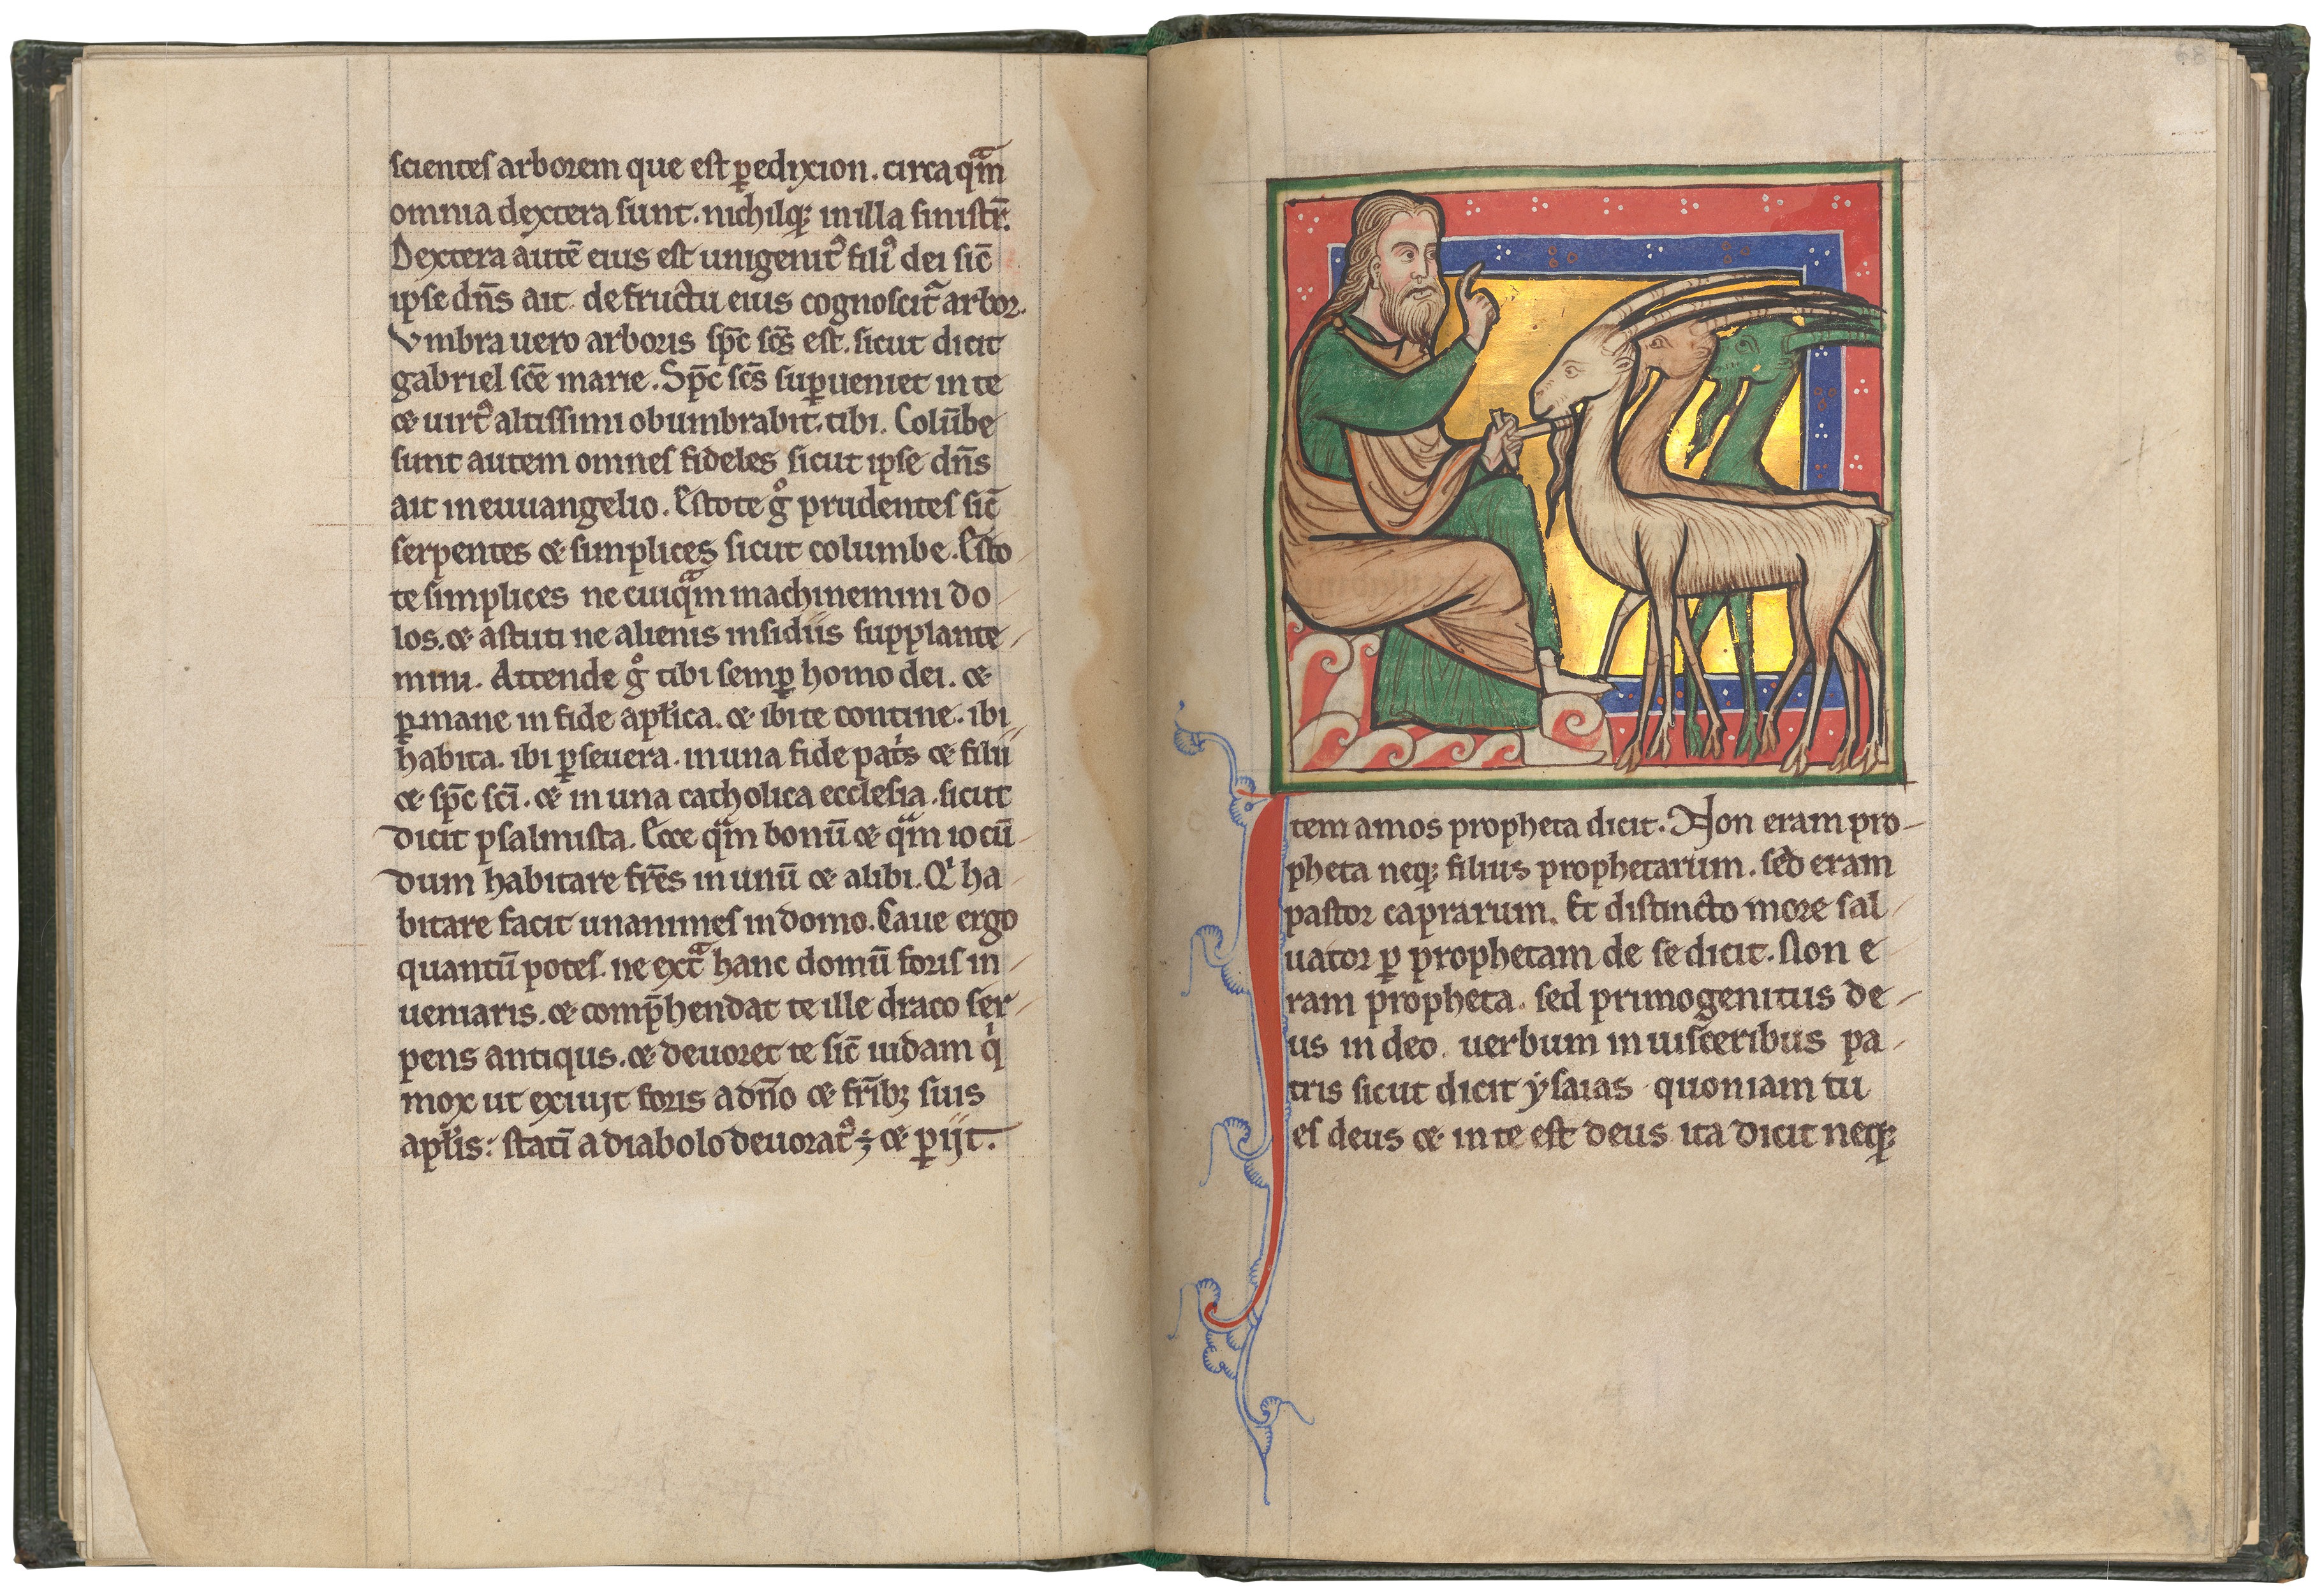 scientes arborem que est ꝑedixion. circa qᷓm
omnia dextera sunt. nichilqꝫ in illa sinistr̄.
Dextera autē eius est unigenitꝰ filiꝰ dei sic̄
ipse dn̄s ait de fructu eius cognoscit᷑ arbor.
Vmbra uero arboris sp̄c sc̄s est. sicut dicit
gabriel sc̄e marie. Sp̄c sc̄s suꝑueniet in te
⁊ uirtꝰ altissimi obumbrabit tibi. Colūbe
sunt autem omnes fideles sicut ipse dn̄s
ait in euuangelio. Estote gͦ prudentes sic̄
serpentes ⁊ simplices sicut columbe. Esto
te simplices ne cuiqᷓm machinemini do
los. ⁊ astuti ne alienis insidiis supplante
mini. Attende gͦ tibi semꝑ homo dei. ⁊
ꝑmane in fide apl̓ica. ⁊ ibi te contine. ibi
habita. ibi ꝑseuera. in una fide pat̓s ⁊ filii
⁊ sp̄c sc̄i. ⁊ in una catholica ecclesia. sicut
dicit psalmista. Ecce qᷓm bonū ⁊ qᷓm iocū
dum habitare fr̄es in unū ⁊ alibi. Qͥ ha
bitare facit unanimes in domo. Caue ergo
quantū potes. ne extᷓ hanc domū foris in
ueniaris. ⁊ comp̄hendat te ille draco ser
pens antiqus. ⁊ deuoret te sic̄ iudam qͥ
mox ut exiuit foris a dn̄o ⁊ fr̄ibꝫ suis
apl̓is: statī a diabolo deuoratꝰ ÷ ⁊ ꝑiit.
68
Item amos propheta dicit. Non eram pro
pheta neqꝫ filius prophetarum. sed eram
pastor caprarum. Et distincto more sal
uator ꝑ prophetam de se dicit. Non e
ram propheta. sed primogenitus de
us in deo. uerbum in uisceribus pa
tris sicut dicit ẏsaias quoniam tu
es deus ⁊ in te est deus ita dicit neqꝫ